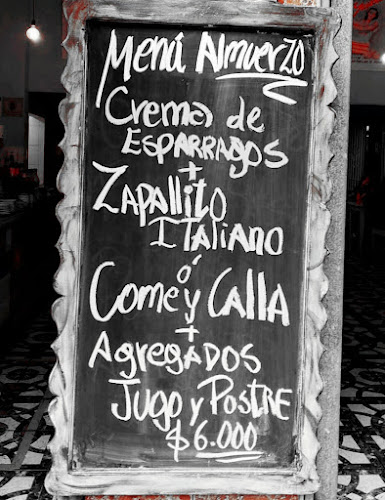 Menú Almuerzo
Crema de
ESPARRAGOS
+
ZAPALLITO
ITALIANO
ó
Come y CALLA
+
AgregADOS
Jugo y POSTRE
$6.000